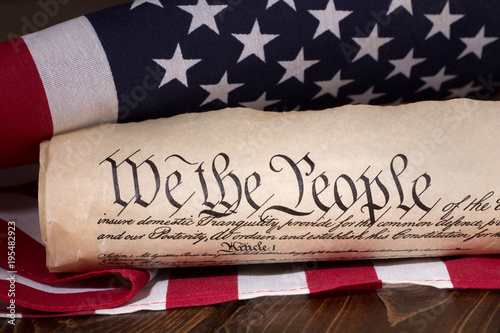 We the People of the
insure domestic Tranquility, provide for the common defence,
and our Posterity, do ordain and establish this Constitution for
Article. I.
Adobe Stock | #195482923